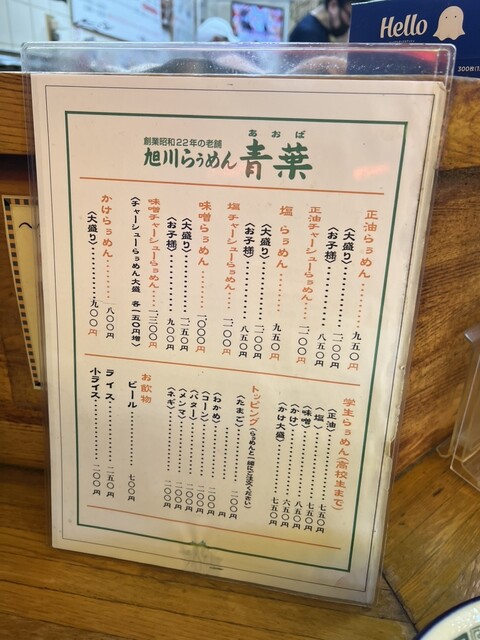 Hello
創業昭和22年の老舗
あおば
旭川らぅめん 青葉
正油らぅめん………九五〇円
〈大盛り〉………一、一〇〇円
〈お子様〉………八五〇円
正油チャーシューらぅめん…一、一〇〇円
塩 らぅめん………九五〇円
〈大盛り〉………一、一〇〇円
〈お子様〉………八五〇円
塩チャーシューらぅめん…一、一〇〇円
味噌らぅめん………一、〇〇〇円
〈大盛り〉………一、一五〇円
〈お子様〉………九〇〇円
味噌チャーシューらぅめん…一、二〇〇円
〈チャーシューらぅめん大盛 各一五〇円増〉
かけらぅめん………八〇〇円
〈大盛り〉………九〇〇円
学生らぅめん〈高校生まで〉
〈正油〉………七五〇円
〈塩〉………七五〇円
〈味噌〉………八五〇円
〈かけ〉………六五〇円
〈かけ大盛〉………七五〇円
トッピング(らぅめんと一緒にご注文ください)
〈たまご〉………一〇〇円
〈わかめ〉………二〇〇円
〈コーン〉………二〇〇円
〈バター〉………二〇〇円
〈メンマ〉………二〇〇円
〈ネギ〉………二〇〇円
お飲物
ビール………七〇〇円
ライス………二五〇円
小ライス………二〇〇円